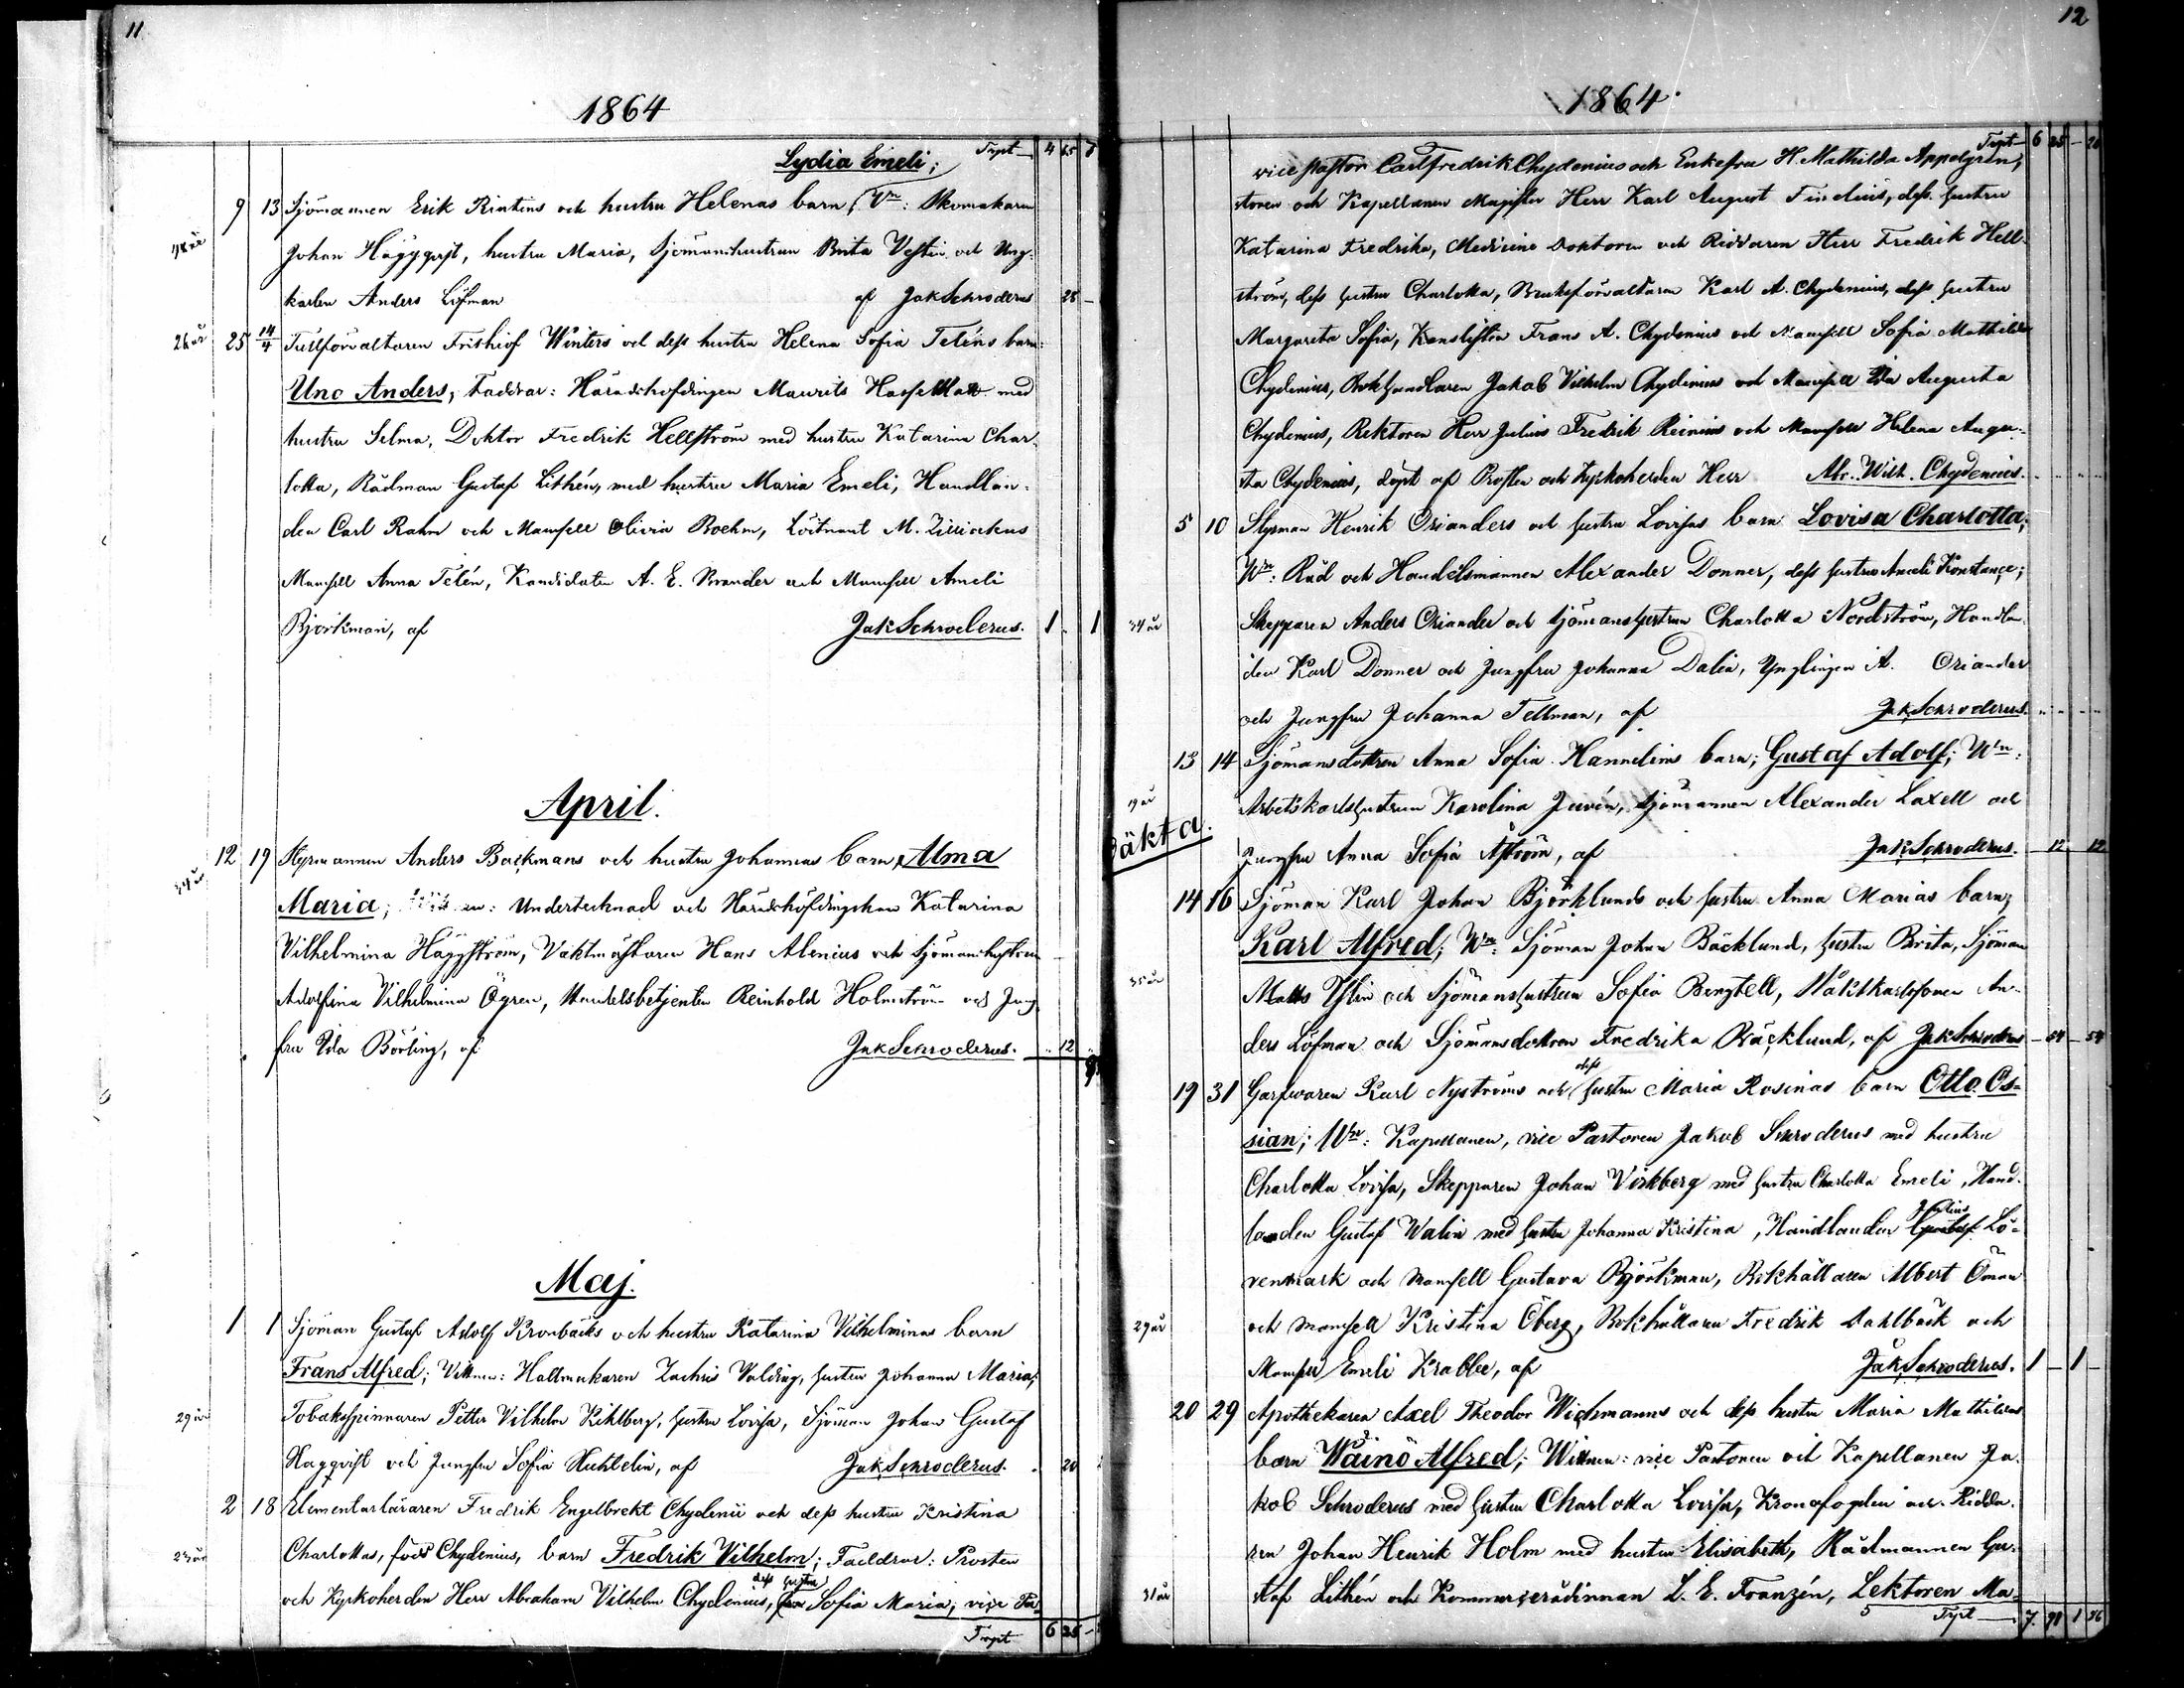 11
1864
Lydia Emeli; Trpt 4 65
9 13 Sjömannen Erik Rintins och hustru Helenas barn, Vn: Skomakaren
Johan Häggqvist, hustru Maria, Sjömanshustrun Brita Vestin och Ung-
karlen Anders Löfman af Jak Schroderus 28 –
26 år 25 14/4 Tullförvaltaren Frithiof Winters och dess hustru Helena Sofia Teléns barn:
Uno Anders, Faddrar: Häradshöfdingen Maurits Hasselblatt med
hustru Selma, Doktor Fredrik Hellström med hustru Katarina Char-
lotta, Rådman Gustaf Lithén, med hustru Maria Emeli, Handlan-
den Carl Rahm och Mamsell Olivia Boehm, Löitnant M. Zilliackus
Mamsell Anna Telén, Kandidaten A. E. Brander och Mamsell Ameli
Björkman, af Jak Schroderus. 1 1
April.
12 19 Styrmannen Anders Backmans och hustru Johannas barn, Alma
Maria; Undertecknad och Häradshöfdingskan Katarina
Vilhelmina Häggström, Vaktmästaren Hans Alenius och Sjömanshustrun
Adolfina Vilhelmina Ögren, Handelsbetjenten Reinhold Holmström och Jung-
fru Ida Böóling, af Jak Schroderus. 12
Maj.
1 1 Sjöman Gustaf Adolf Kronbäcks och hustru Katarina Vilhelminas barn
Frans Alfred; Vittnen: Hattmakaren Zachris Valding, hustru Johanna Maria,
29 år Tobaksspinnaren Petter Vilhelm Kihlberg, hustru Lovisa, Sjöman Johan Gustaf
Häggqvist och Jungfru Sofia Huhtelin, af Jak Schroderus. 20
2 18 Elementarläraren Fredrik Engelbrekt Chydenii och dess hustru Kristina
23 år Charlottas, född Chydenius, barn Fredrik Vilhelm; Faddrar: Prosten
och Kyrkoherden Herr Abraham Vilhelm Chydenius, dess hustru Sofia Maria, vice Pa-
Trpt 6 25 –
12
1864.
Trpt 6 25 – 26
vice pastor Carl Fredrik Chydenius och Enkefru H. Mathilda Appelgren,
storen och Kapellanen Magister Herr Karl August Findius, dess hustru
Katarina Fredrika, Medicine Doktoren och Riddaren Herr Fredrik Hell-
ström, dess hustru Charlotta, Bruksförvaltaren Karl A. Chydenius, dess hustru
Margareta Sofia, Kanslisten Frans A. Chydenius och Mamsell Sofia Mathilda
Chydenius, Bokhandlaren Jakob Vilhelm Chydenius och Mamsell Ida Augusta
Chydenius, Rektoren Herr Julius Fredrik Reinius och Mamsell Helena Augu-
sta Chydenius, döpt af Prosten och Kyrkoherden Herr Abr. Wilh. Chydenius.
5 10 Styrman Henrik Orianders och hustru Lovisas barn Lovisa Charlotta;
Wn: Råd och Handelsmannen Alexander Donner, dess hustru Ameli Konstance;
34 år Skepparen Anders Oriander och Sjömanshustrun Charlotta Nordström, Handlan
den Karl Donner och Jungfru Johanna Dalin, Ynglingen A. Oriander
och Jungfru Johanna Tellman, af Jak Schroderus.
13 14 Sjömansdottren Anna Sofia Hannelins barn; Gustaf Adolf; Wn:
19 år Arbetskarlshustrun Karolina Juvén, Sjömannen Alexander Laxell och
Oäkta. Jungfru Anna Sofia Åström, af Jak Schroderus. 12 12
14 16 Sjöman Karl Johan Björklunds och hustru Anna Marias barn;
Karl Alfred; Wn: Sjöman Johan Bäcklund, hustru Brita, Sjöman
35 år Matts Uhlin och Sjömanshustrun Sofia Bengtell, An-
ders Löfman och Sjömansdottren Fredrika Bäcklund, af Jak Schroderus – 54 – 54
19 31 Garfvaren Karl Nyströms och dess hustru Maria Rosinas barn Otto Os-
sian; Wn: Kapellanen, vice Pastoren Jakob Schroderus med hustru
Charlotta Lovisa, Skepparen Johan Wirkberg med hustru Charlotta Emeli, Hand-
landen Gustaf Walin med hustru Johanna Kristina, Handlanden Gustaf Julius Lö-
venmark och Mamsell Gustava Björkman, Bokhållaren Albert Öman
29 år och Mamsell Kristina Öberg, Bokhållaren Fredrik Dahlbäck och
Mamsell Emeli Krabbe, af Jak Schroderus. 1 – 1 –
20 29 Apothekaren Axel Theodor Wichmanns och dess hustru Maria Mathildas
barn Wäinö Alfred; Wittnen: vice Pastoren och Kapellanen Ja-
kob Schroderus med hustru Charlotta Lovisa, Kronofogden och Ridda-
ren Johan Henrik Holm med hustru Elisabeth, Rådmannen Gu-
31 år staf Lithén och Kommerserådinnan L. E. Franzén, Lektoren Ma-
5 Trpt 7. 91 1 26